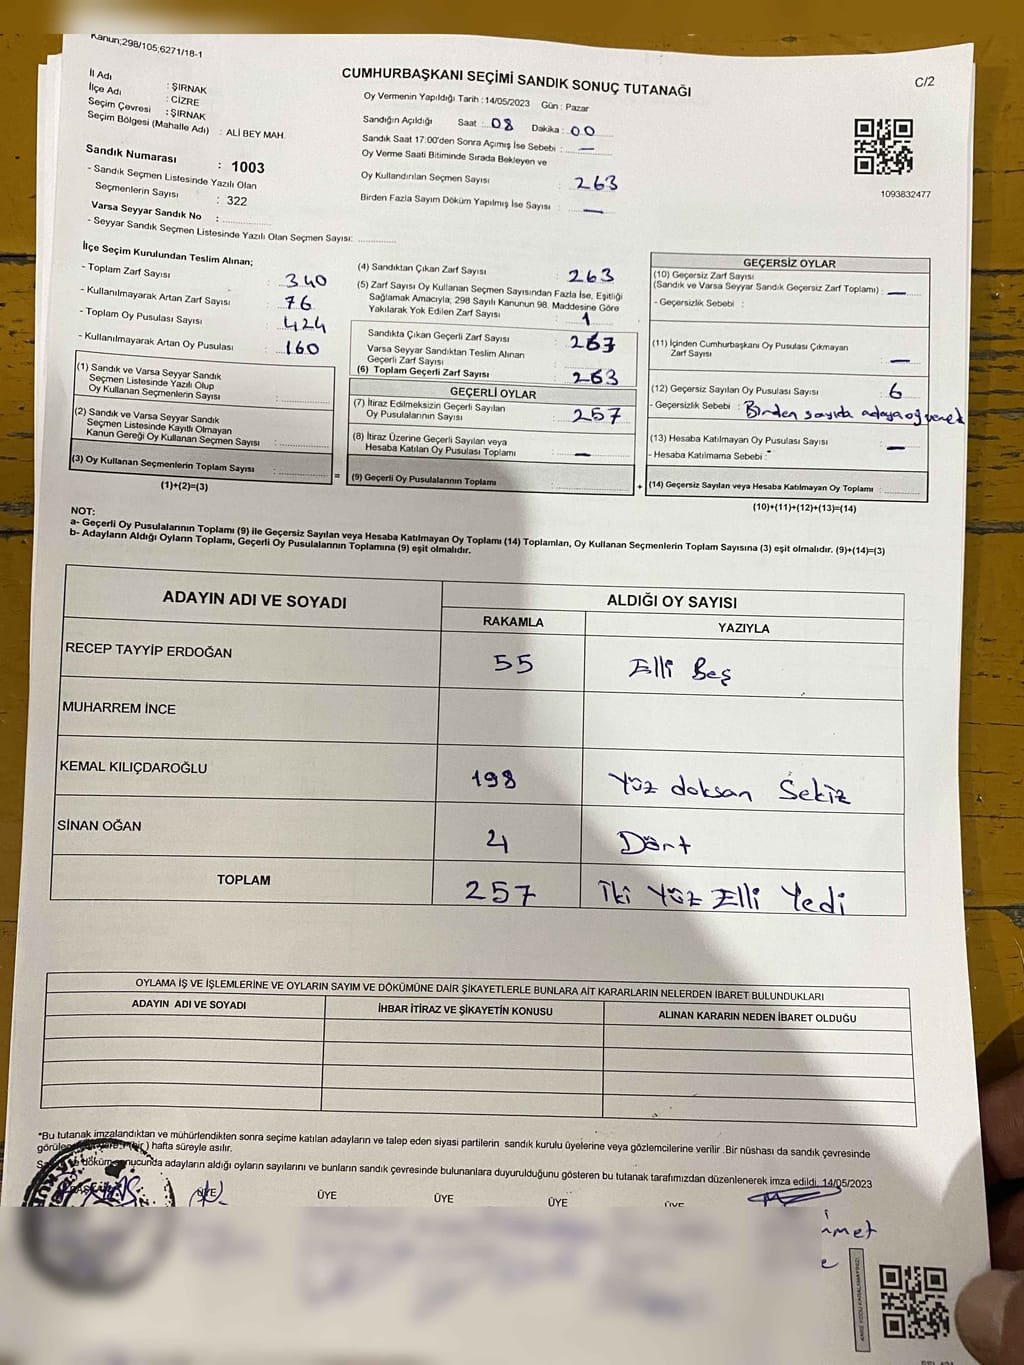 Kanun;298/105;6271/18-1
C/2
CUMHURBAŞKANI SEÇİMİ SANDIK SONUÇ TUTANAĞI
İl Adı : ŞIRNAK
İlçe Adı : CİZRE
Seçim Çevresi : ŞIRNAK
Seçim Bölgesi (Mahalle Adı) : ALİ BEY MAH.
Sandık Numarası : 1003
- Sandık Seçmen Listesinde Yazılı Olan
Seçmenlerin Sayısı : 322
Varsa Seyyar Sandık No :
- Seyyar Sandık Seçmen Listesinde Yazılı Olan Seçmen Sayısı:
Oy Vermenin Yapıldığı Tarih : 14/05/2023 Gün : Pazar
Sandığın Açıldığı Saat : 08 Dakika : 00
Sandık Saat 17:00'den Sonra Açımış İse Sebebi : —
Oy Verme Saati Bitiminde Sırada Bekleyen ve
Oy Kullandırılan Seçmen Sayısı : 263
Birden Fazla Sayım Döküm Yapılmış İse Sayısı : —
1093832477
İlçe Seçim Kurulundan Teslim Alınan;
- Toplam Zarf Sayısı : 340
- Kullanılmayarak Artan Zarf Sayısı : 76
- Toplam Oy Pusulası Sayısı : 424
- Kullanılmayarak Artan Oy Pusulası : 160
(1) Sandık ve Varsa Seyyar Sandık
Seçmen Listesinde Yazılı Olup
Oy Kullanan Seçmenlerin Sayısı :
(2) Sandık ve Varsa Seyyar Sandık
Seçmen Listesinde Kayıtlı Olmayan
Kanun Gereği Oy Kullanan Seçmen Sayısı :
(3) Oy Kullanan Seçmenlerin Toplam Sayısı :
(1)+(2)=(3)
(4) Sandıktan Çıkan Zarf Sayısı : 263
(5) Zarf Sayısı Oy Kullanan Seçmen Sayısından Fazla İse, Eşitliği
Sağlamak Amacıyla, 298 Sayılı Kanunun 98. Maddesine Göre
Yakılarak Yok Edilen Zarf Sayısı : 1
Sandıkta Çıkan Geçerli Zarf Sayısı : 263
Varsa Seyyar Sandıktan Teslim Alınan
Geçerli Zarf Sayısı :
(6) Toplam Geçerli Zarf Sayısı : 263
GEÇERLİ OYLAR
(7) İtiraz Edilmeksizin Geçerli Sayılan
Oy Pusulalarının Sayısı : 257
(8) İtiraz Üzerine Geçerli Sayılan veya
Hesaba Katılan Oy Pusulası Toplamı : —
= (9) Geçerli Oy Pusulalarının Toplamı :
GEÇERSİZ OYLAR
(10) Geçersiz Zarf Sayısı
(Sandık ve Varsa Seyyar Sandık Geçersiz Zarf Toplamı) : —
- Geçersizlik Sebebi :
(11) İçinden Cumhurbaşkanı Oy Pusulası Çıkmayan
Zarf Sayısı : —
(12) Geçersiz Sayılan Oy Pusulası Sayısı : 6
- Geçersizlik Sebebi : Birden sayıda adaya oy verek
(13) Hesaba Katılmayan Oy Pusulası Sayısı : —
- Hesaba Katılmama Sebebi :
+ (14) Geçersiz Sayılan veya Hesaba Katılmayan Oy Toplamı :
(10)+(11)+(12)+(13)=(14)
NOT:
a- Geçerli Oy Pusulalarının Toplamı (9) ile Geçersiz Sayılan veya Hesaba Katılmayan Oy Toplamı (14) Toplamları, Oy Kullanan Seçmenlerin Toplam Sayısına (3) eşit olmalıdır. (9)+(14)=(3)
b- Adayların Aldığı Oyların Toplamı, Geçerli Oy Pusulalarının Toplamına (9) eşit olmalıdır.
ADAYIN ADI VE SOYADI ALDIĞI OY SAYISI
RAKAMLA YAZIYLA
RECEP TAYYİP ERDOĞAN 55 Elli Beş
MUHARREM İNCE
KEMAL KILIÇDAROĞLU 198 Yüz doksan Sekiz
SİNAN OĞAN 4 Dört
TOPLAM 257 İki Yüz Elli Yedi
OYLAMA İŞ VE İŞLEMLERİNE VE OYLARIN SAYIM VE DÖKÜMÜNE DAİR ŞİKAYETLERLE BUNLARA AİT KARARLARIN NELERDEN İBARET BULUNDUKLARI
ADAYIN ADI VE SOYADI İHBAR İTİRAZ VE ŞİKAYETİN KONUSU ALINAN KARARIN NEDEN İBARET OLDUĞU
*Bu tutanak imzalandıktan ve mühürlendikten sonra seçime katılan adayların ve talep eden siyasi partilerin sandık kurulu üyelerine veya gözlemcilerine verilir .Bir nüshası da sandık çevresinde
(bir ) hafta süreyle asılır.
adayların aldığı oyların sayılarını ve bunların sandık çevresinde bulunanlara duyurulduğunu gösteren bu tutanak tarafımızdan düzenlenerek imza edildi. 14/05/2023
ÜYE ÜYE ÜYE ÜYE ÜYE